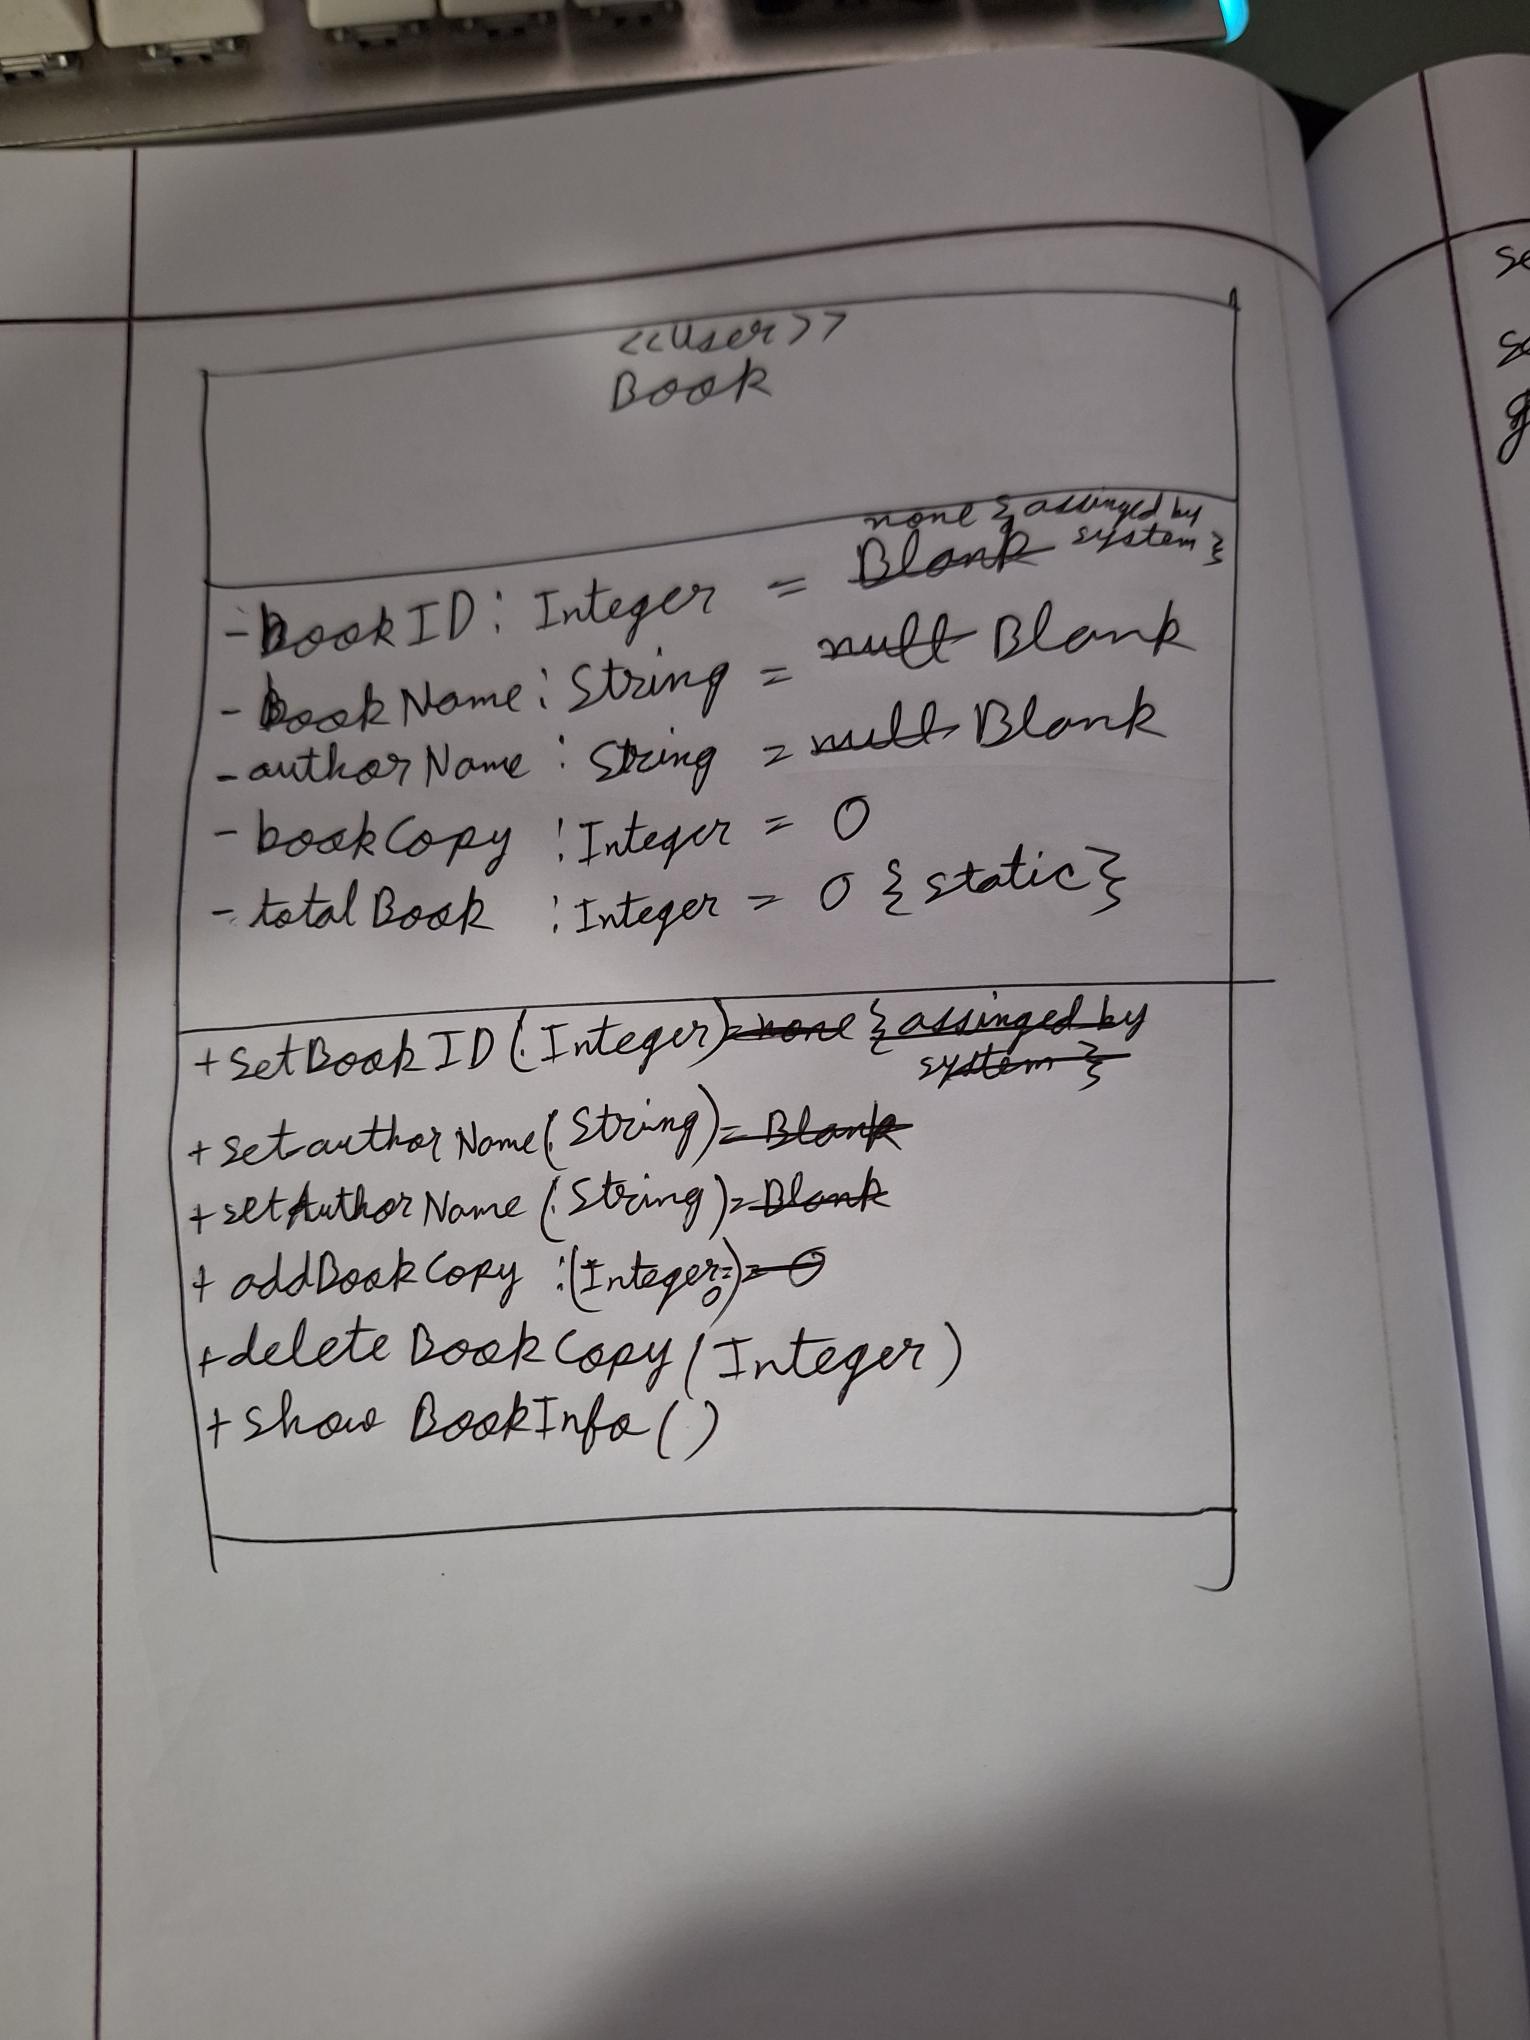 <<User>>
Book
none {assinged by
system}
- bookID : Integer = Blank
- bookName : String = null Blank
- authorName : String = null Blank
- bookCopy : Integer = 0
- totalBook : Integer = 0 {static}
+ setBookID (: Integer) = none {assinged by
system}
+ setauthorName (: String) = Blank
+ setAuthorName (: String) = Blank
+ addBookCopy : (Integer = 0) = 0
+ deleteBookCopy (Integer)
+ show BookInfo ()